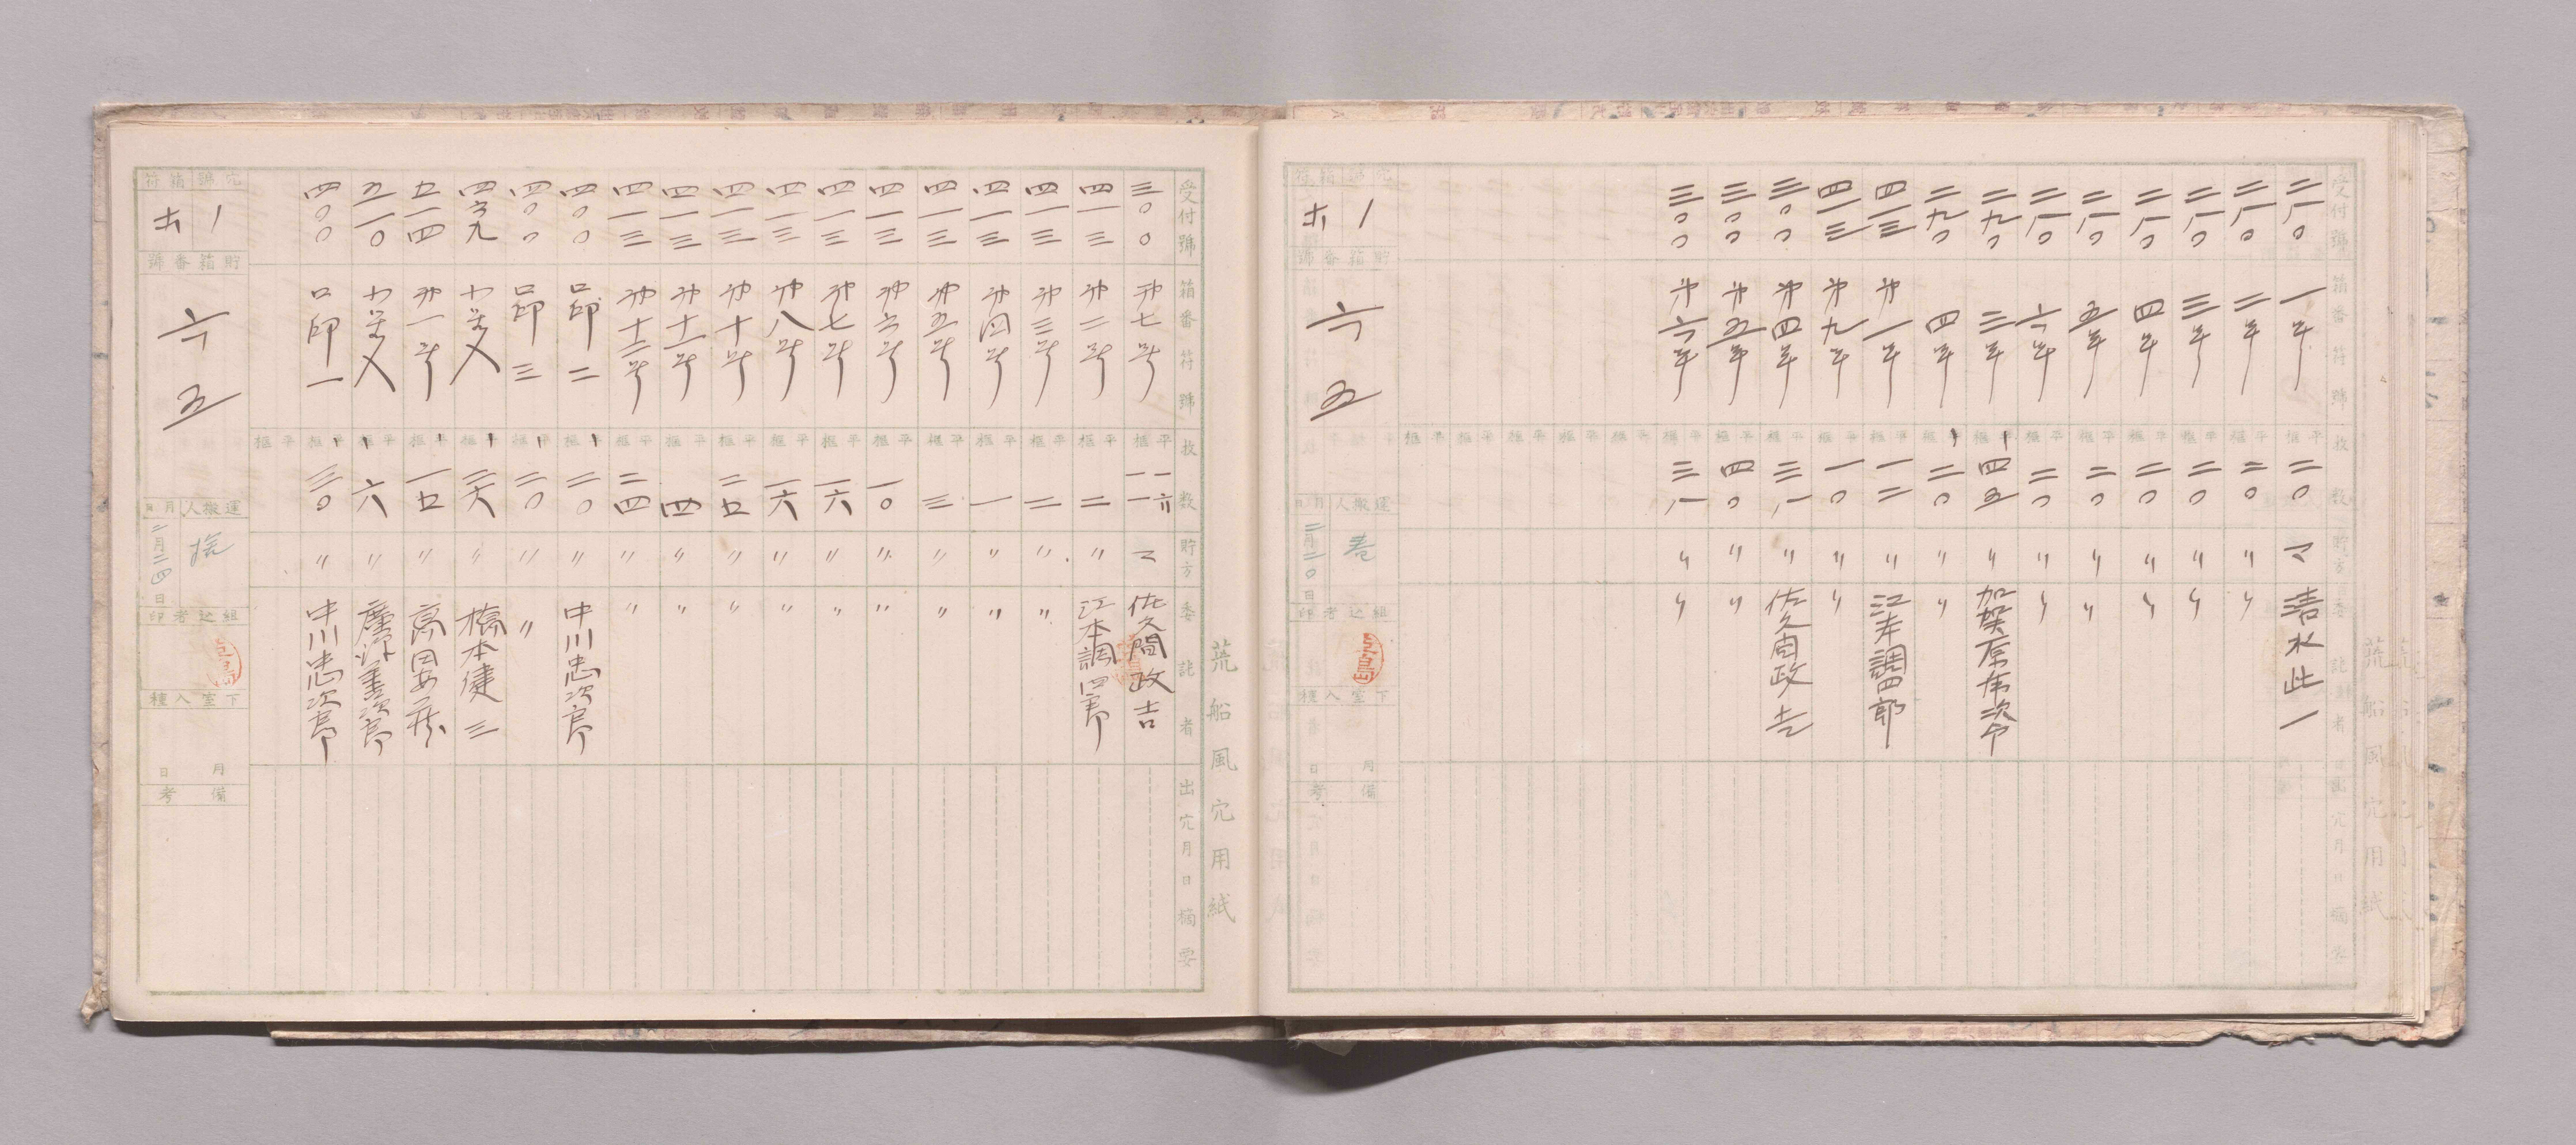 荒船風穴用紙
受付號 箱番符號 枚数 貯方 委託者 出穴月日摘要
二八〇 一号 二〇 マ 清水此一
二八〇 二号 二〇 〃 〃
二八〇 三号 二〇 〃 〃
二八〇 四号 二〇 〃 〃
二八〇 五号 二〇 〃 〃
二八〇 六号 二〇 〃 〃
二九〇 三号 四五 〃 加賀原
二九〇 四号 二〇 〃 〃
四一三 第一号 一二 〃 江本調四郎
四一三 第九号 一〇 〃 〃
三〇〇 第四号 三一 〃 佐久間政吉
三〇〇 第五号 四〇 〃 〃
三〇〇 第六号 三一 〃 〃
穴號 箱符
1 ホ
貯箱番號
六五
運搬人 月日
二月二〇日
組込者印
下室入種
月 日
備考
荒船風穴用紙
受付號 箱番符號 枚数 貯方 委託者 出穴月日摘要
三〇〇 第七号 マ 佐久間政吉
四一三 第二号 二 〃 江本調四郎
四一三 第三号 二 〃 〃
四一三 第四号 一 〃 〃
四一三 第五号 三 〃 〃
四一三 第六号 一〇 〃 〃
四一三 第七号 一六 〃 〃
四一三 第八号 一六 〃 〃
四一三 第十号 二五 〃 〃
四一三 第十一号 四 〃 〃
四一三 第十二号 二四 〃 〃
四〇〇 口印 二 二〇 〃 中川忠次郎
四〇〇 口印 三 二〇 〃 〃
四六九 二六 〃 橋本健三
五一四 第一号 一五 〃 高田安蔵
五一〇 六 〃
四〇〇 口印 一 三〇 〃 中川忠次郎
穴號 箱符
1 ホ
貯箱番號
六五
運搬人 月日
二月二四日
組込者印
下室入種
月 日
備考